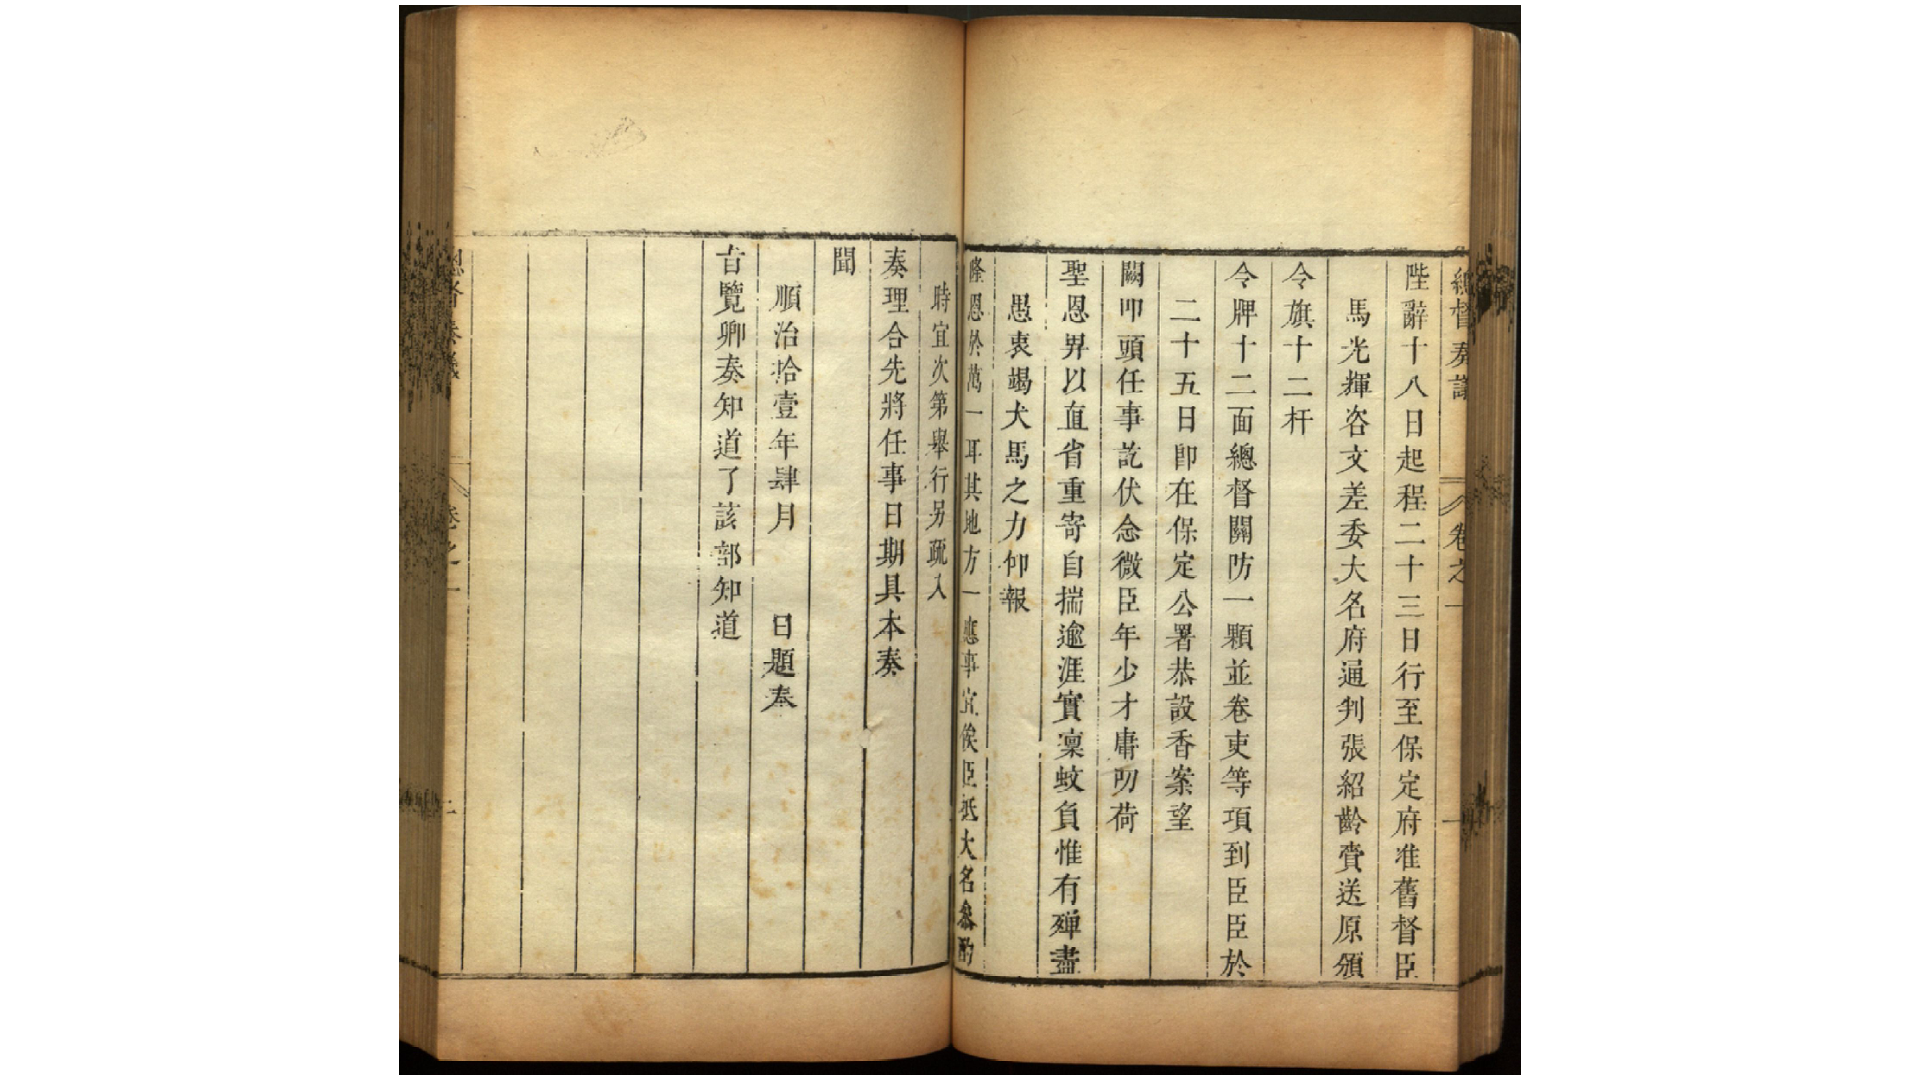 總督奏議 卷之一 一
陛辭十八日起程二十三日行至保定府准舊督臣
馬光輝咨文差委大名府通判張紹齡賫送原頒
令旗十二杆
令牌十二面總督關防一顆並卷吏等項到臣臣於
二十五日卽在保定公署恭設香案望
闕叩頭任事訖伏念微臣年少才庸叨荷
聖恩畀以直省重寄自揣逾涯實凜蚊負惟有殫盡
愚衷竭犬馬之力仰報
隆恩於萬一耳其地方一應事宜俟臣抵大名叅酌
時宜次第舉行另疏入
奏理合先將任事日期具本奏
聞
順治拾壹年肆月 日題奏
旨覽卿奏知道了該部知道
總督奏議 卷之一 二